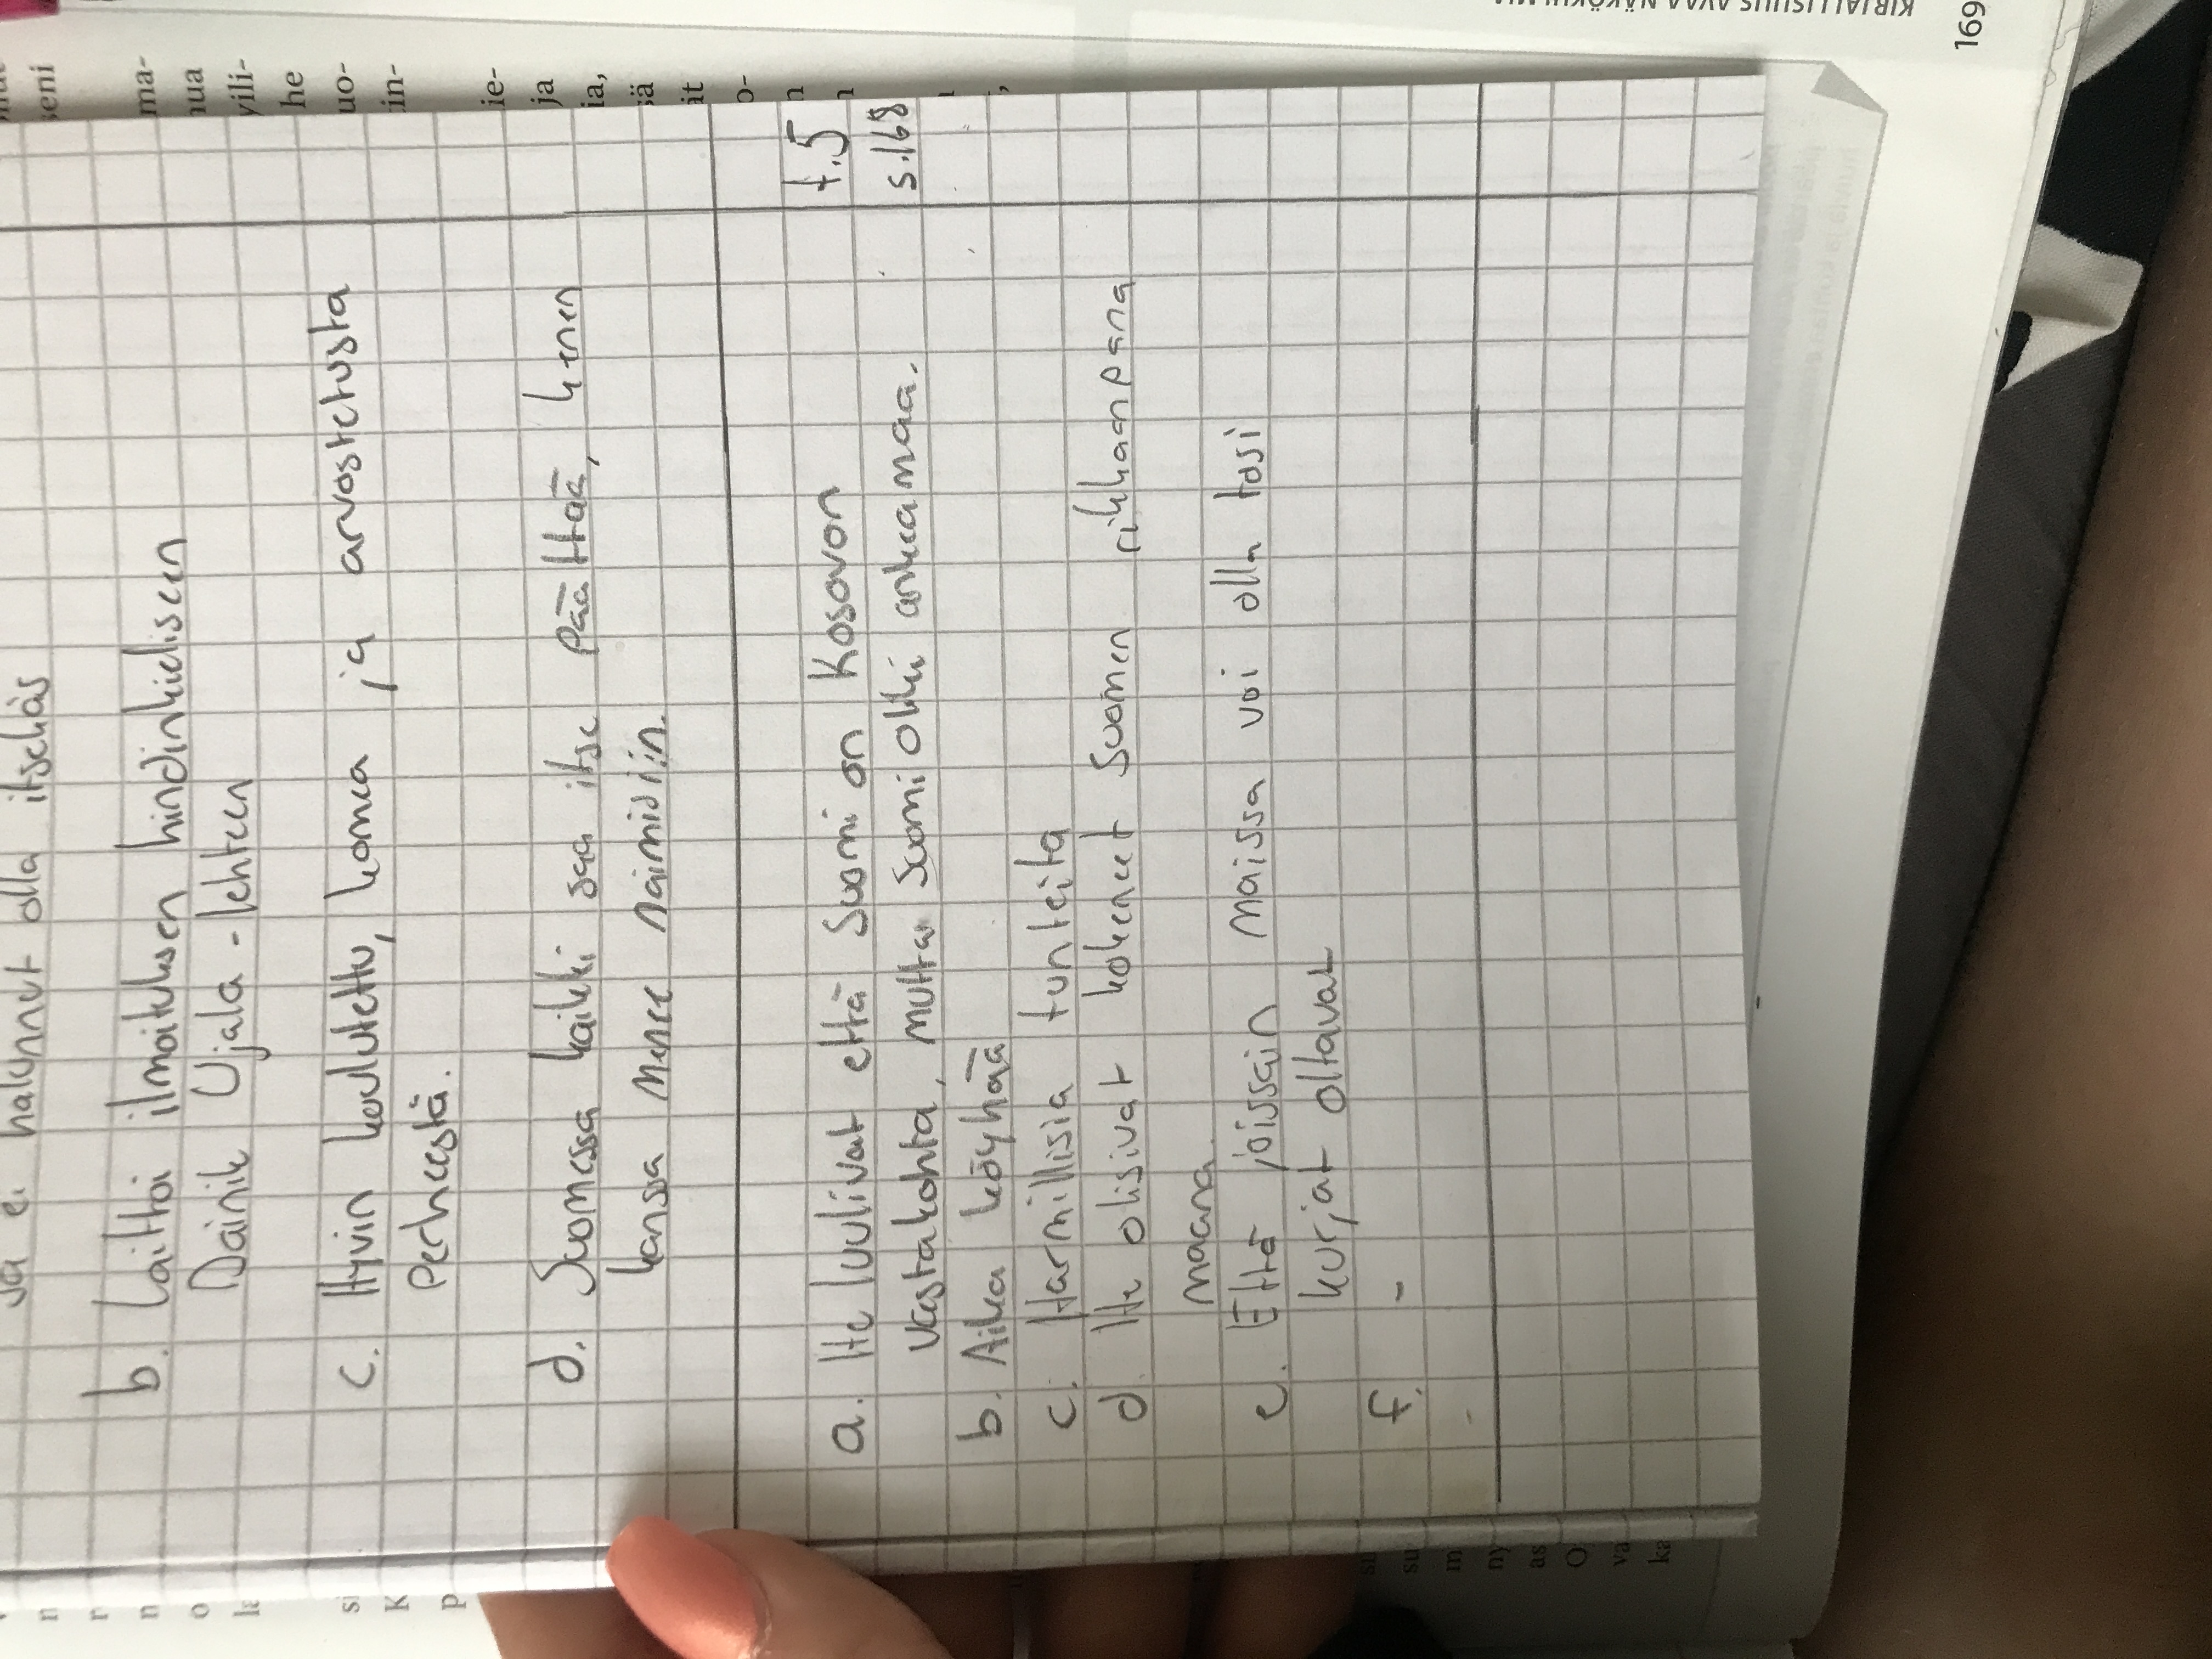 sa ei halunnut olla itsekäs
b. Laittoi ilmoituksen hindinkieliseen
Dainik Ujala - lehteen
c. Hyvin koulutettu, komea ja arvostetusta
Perheestä.
d. Suomessa kaikki saa itse päättää, kenen
kanssa menee naimisiin.
t.5
s.168
a. He luulivat että Suomi on Kosovon
vastakohta, mutta Suomi olikin ankea maa.
b. Aika köyhää
c. Harmillisia tunteita
d. He olisivat kokeneet Suomen rikkaanpana
maana
e. Että joissain maissa voi olla tosi
kurjat oltavat
f. -
KIRJALLISUUS AVAA NÄKÖKULMIA
169
seni
ma-
nua
vili-
he
uo-
in-
ie-
ja
ia,
sä
ät
o-
n
n
n
r
n
o
si
K
p
su
m
ny
as
O
va
ka